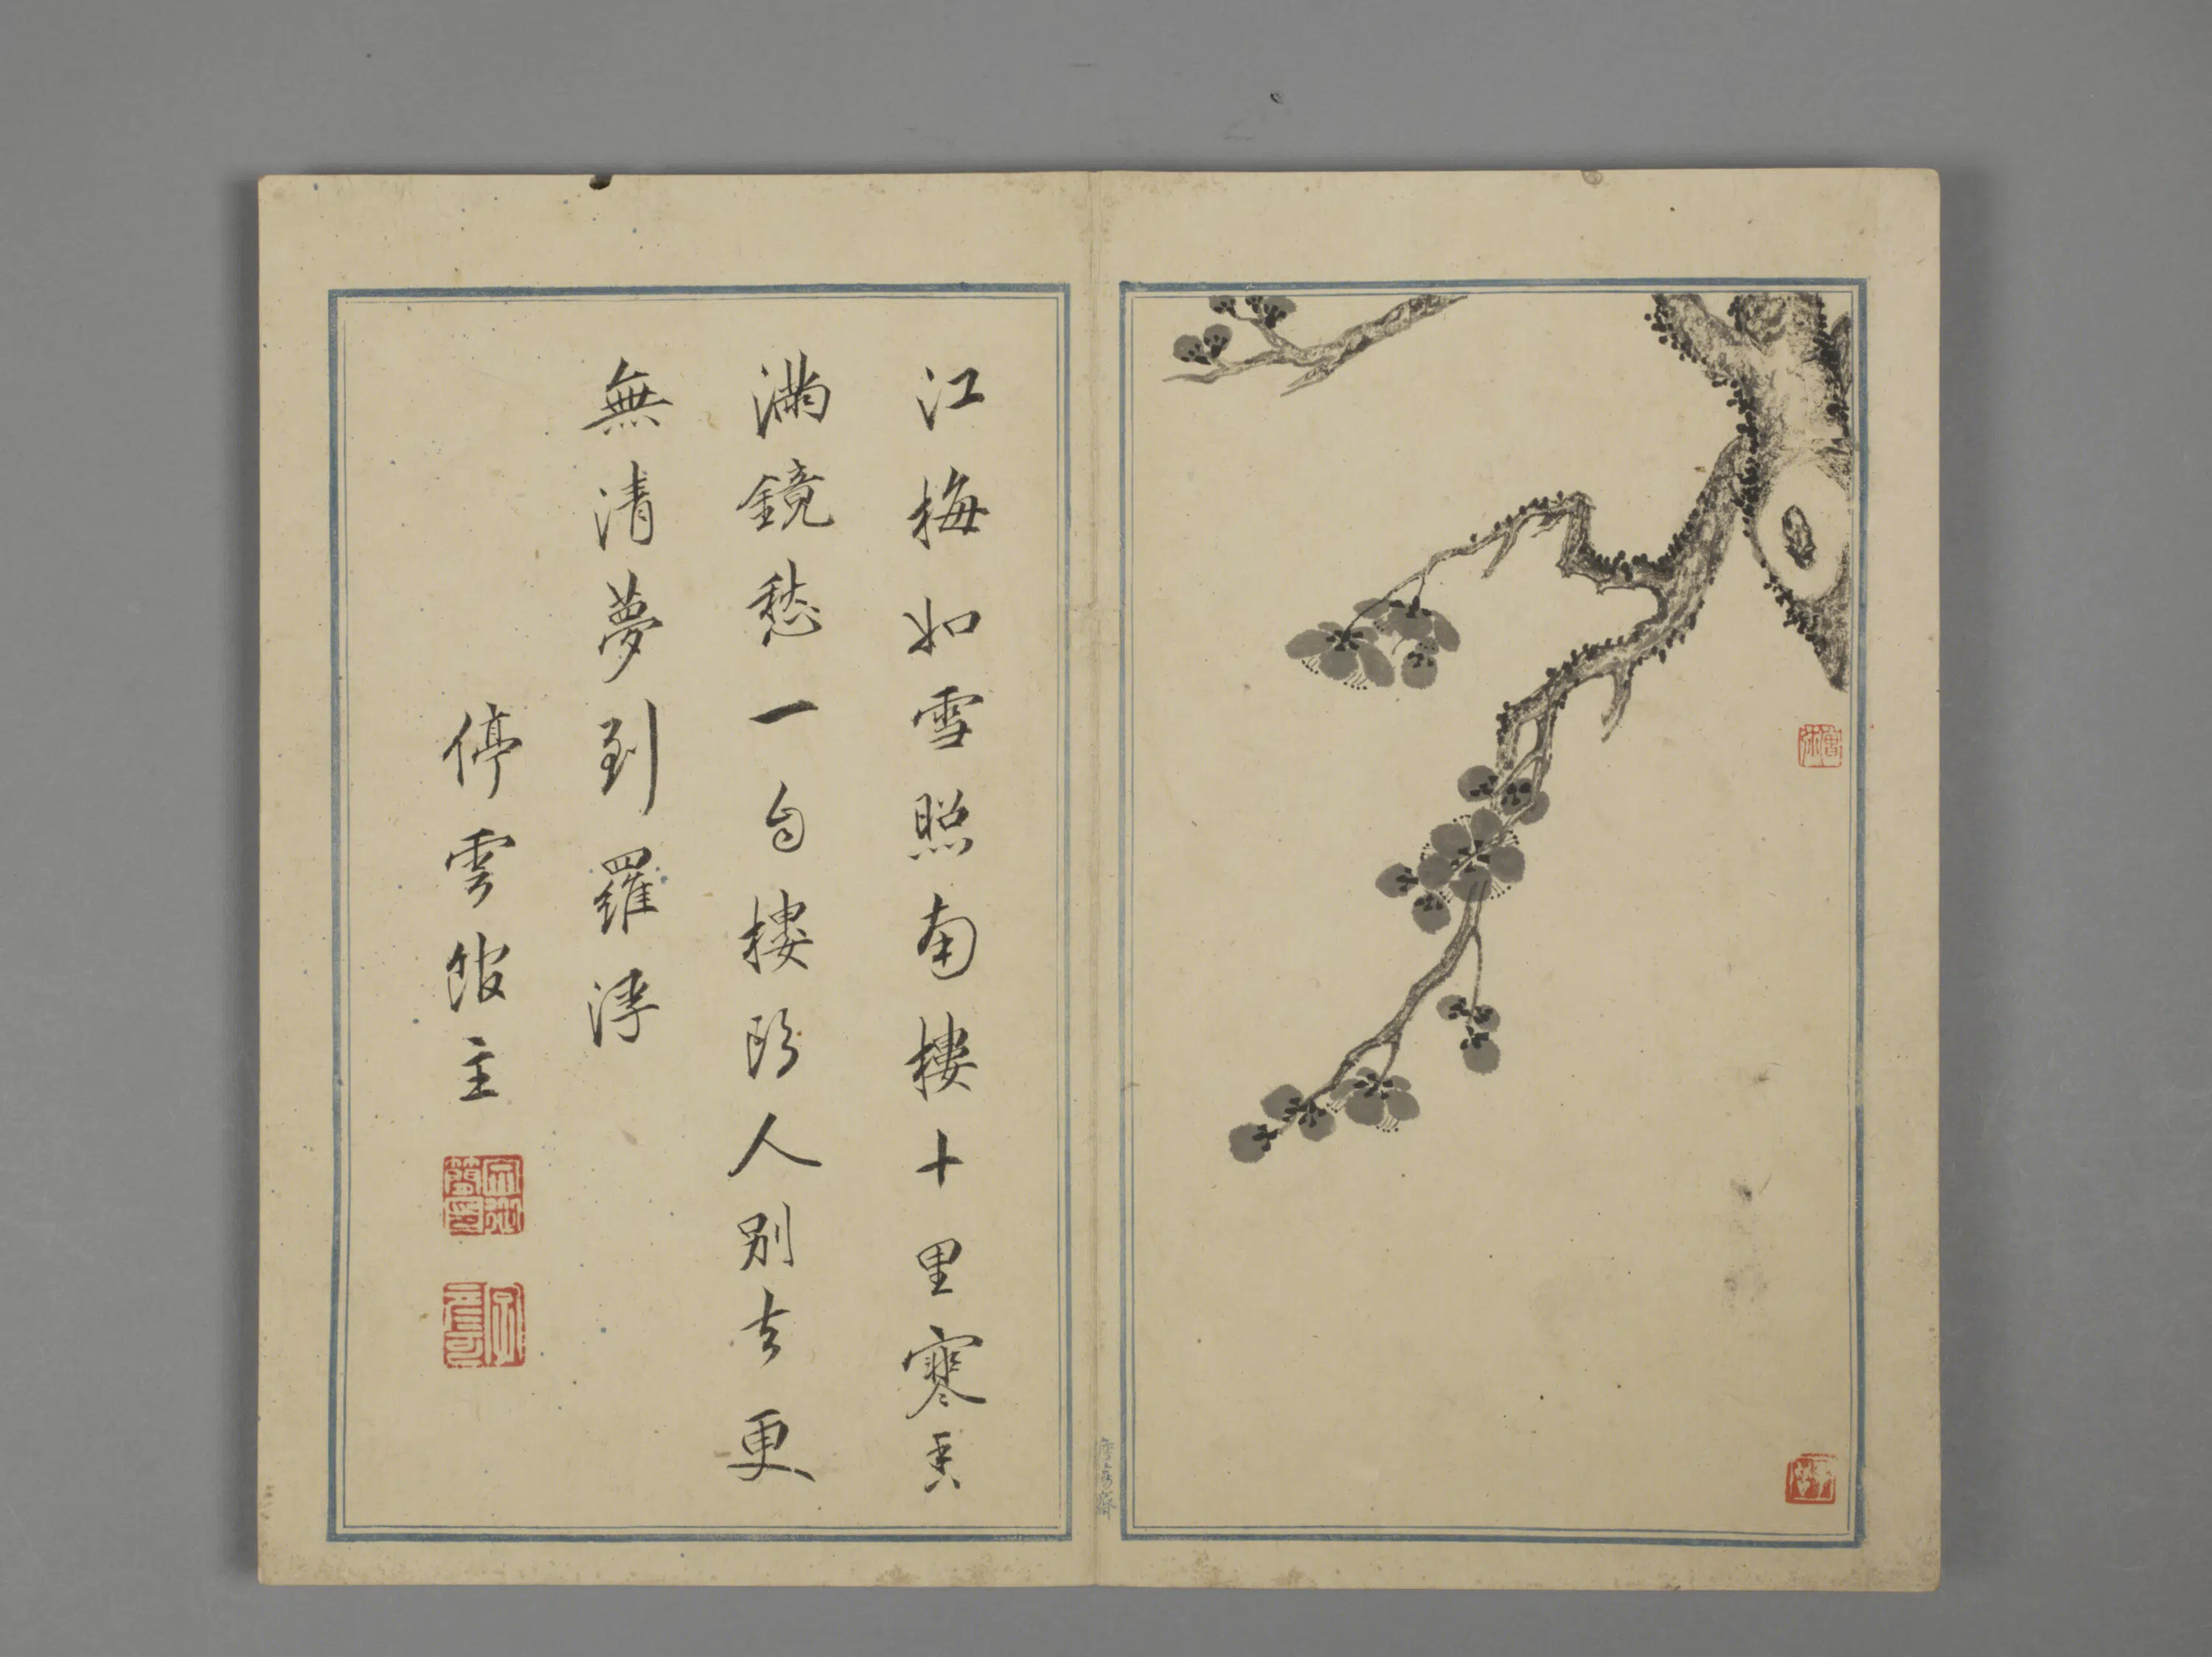 江梅如雪照南樓十里寒香
滿鏡愁一自樓頭人別去更
無清夢到羅浮
停雲館主